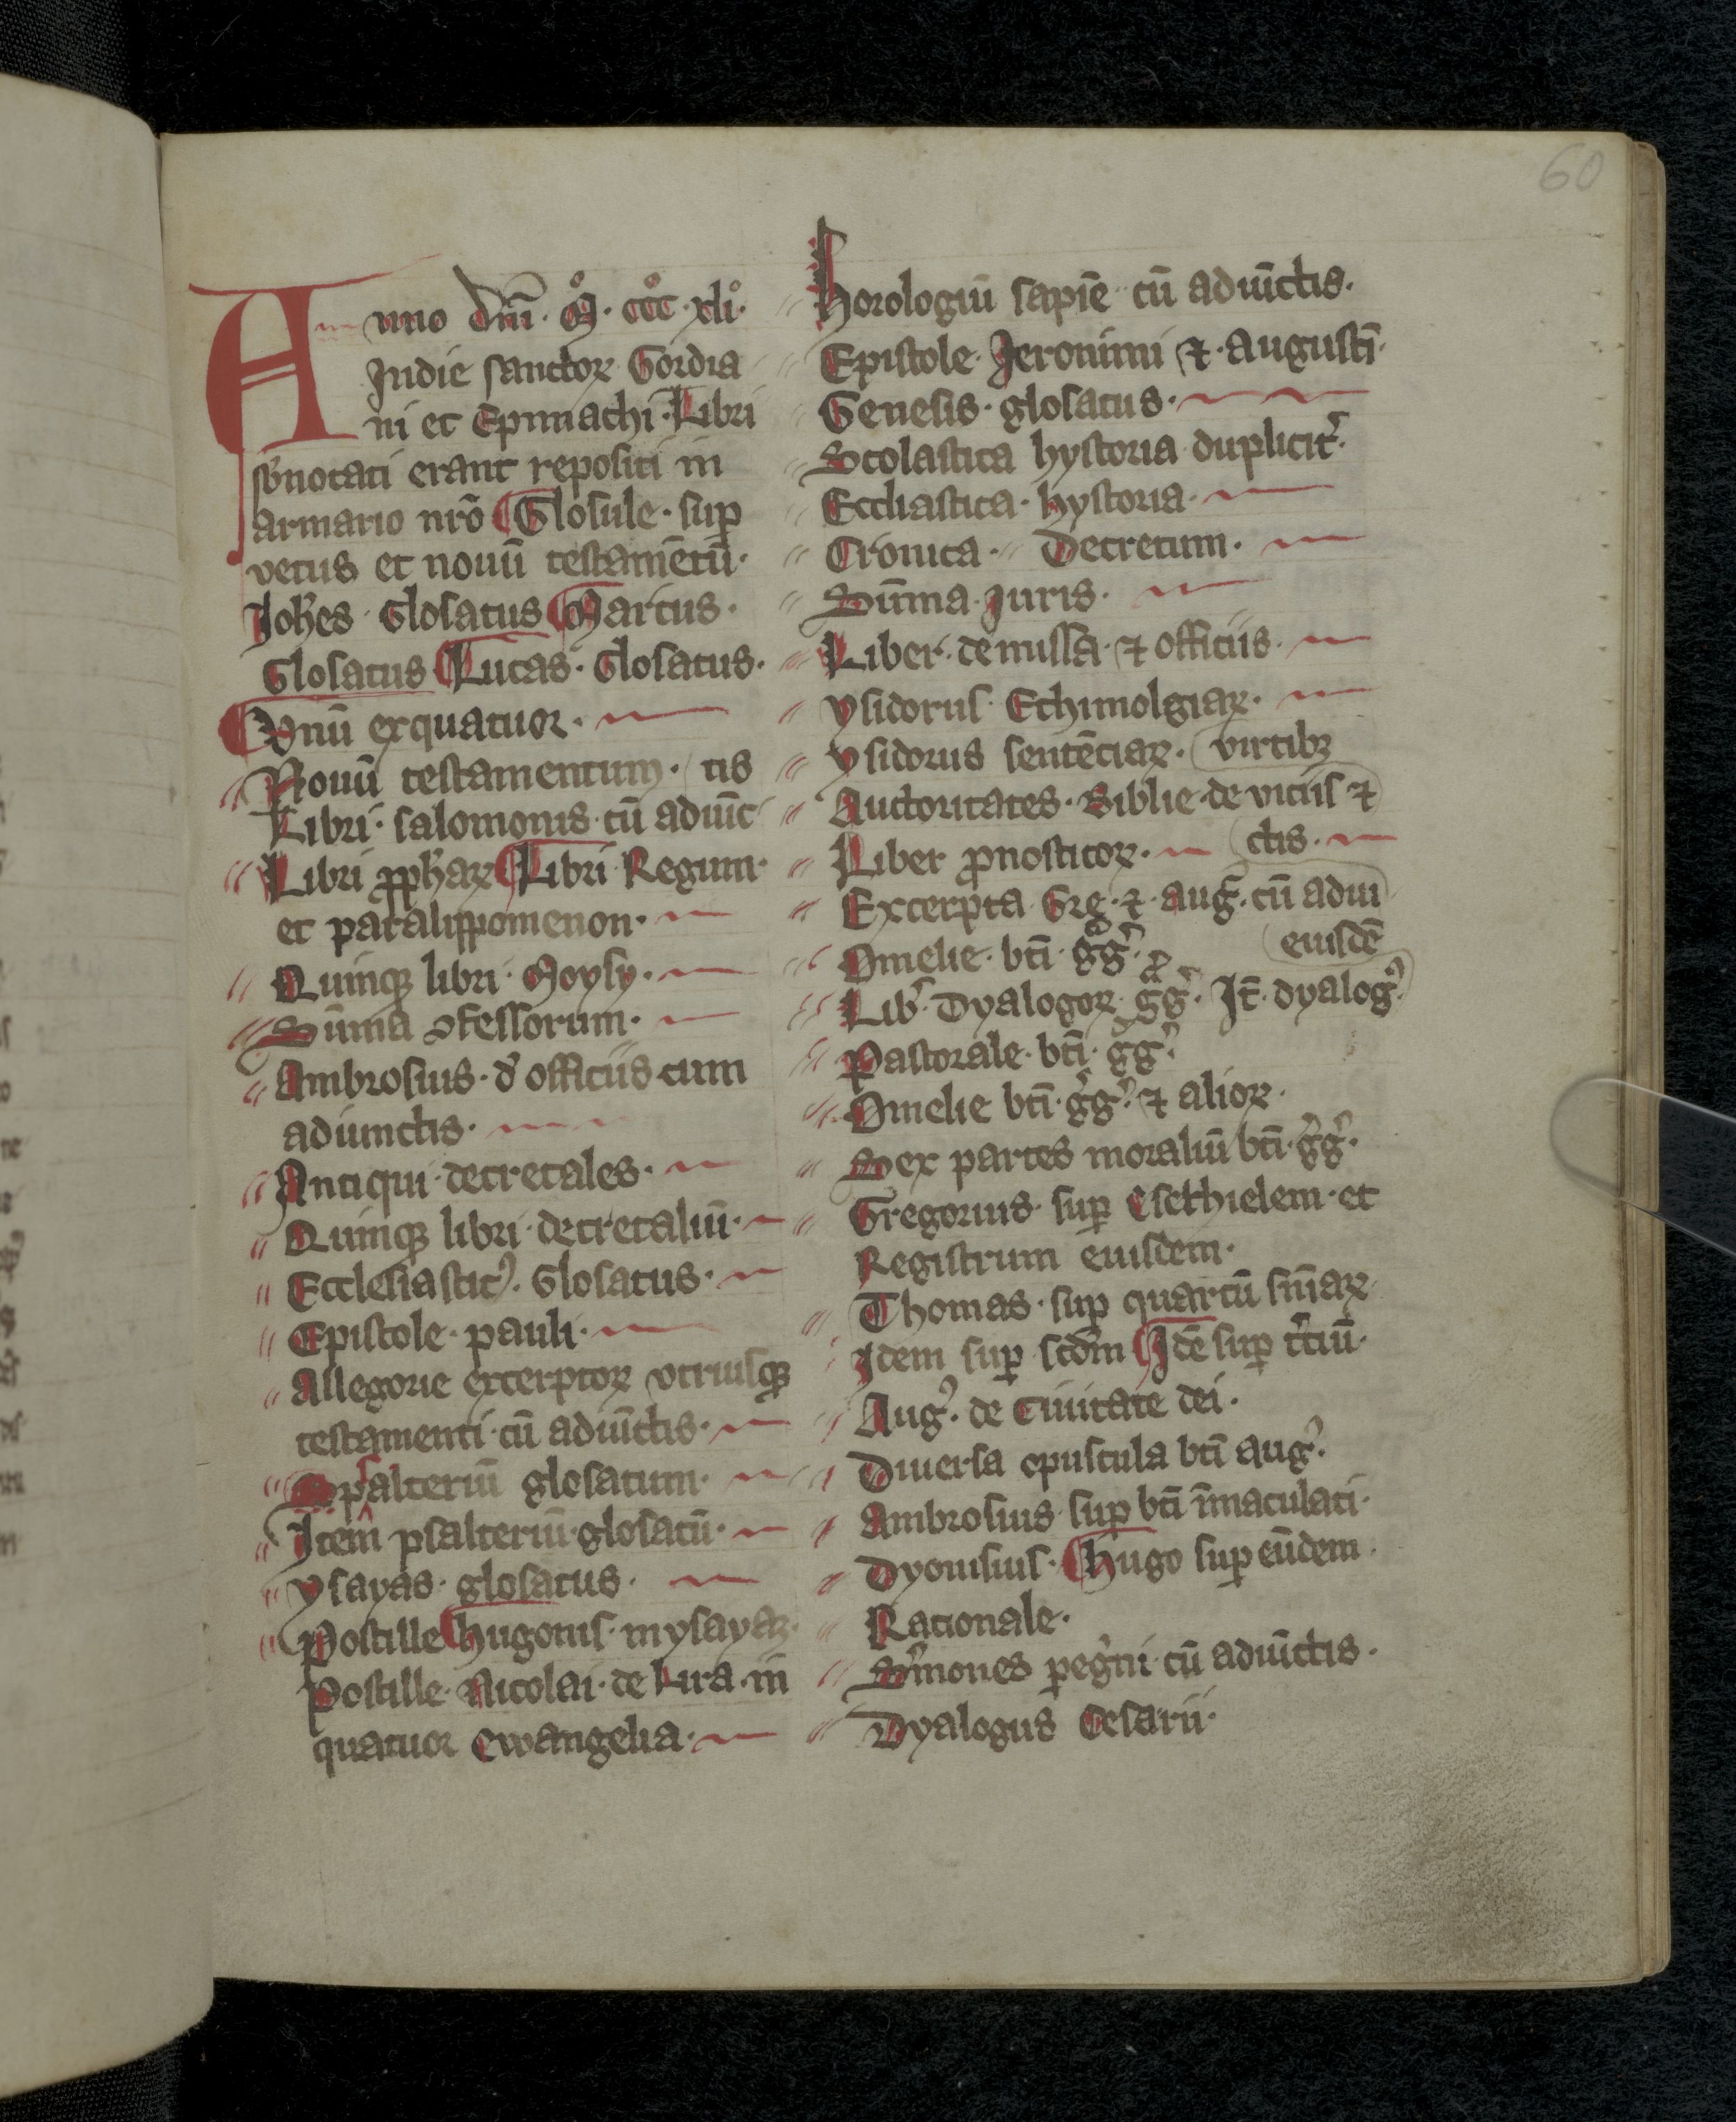 60
Anno dn̄i. M̊. ccc̊. xli̊.
Indie sanctoꝝ Gordia
ni et Epimachi. Libri
sb̄notati erant repositi in
armario nr̄o Glosule. suꝑ
vetus et nouū testamētū.
Joh̄es. Glosatus Marcus.
Glosatus Lucas. Glosatus.
Vnū exquatuor.
Nouū testamentum. tis
Libri. salomonis. cū adiūc
Libri ꝓph̄aꝝ Libri Regum.
et paralippomenon.
Quinqꝫ libri. Moysy.
Sūma ꝯfessorum.
Ambrosius. d̾ officiis cum
adiunctis.
Antiqui. decretales.
Quinqꝫ libri. decretaliū.
Ecclesiasticꝰ. Glosatus.
Epistole. pauli.
Allegorie excerptoꝝ vtriusqꝫ
testamenti. cū adiūctis.
Psalteriū glosatum.
Item psalteriū. glosatū.
ysayas. glosatus.
Postille hugonis. inysayaꝫ.
Postille. Nicolai. de Lira. in
quatuor ewangelia.
horologiū sapīe cū adiūctis.
Epistole. Jeronimi ⁊. augustī.
Genesis. glosatus.
Scolastica hystoria duplicit̾.
Eccliastica. hystoria.
Cronica. Decretum.
Sūma. Juris.
Liber. de missa. ⁊ officiis.
ysidorus. Ethimolgiaꝝ.
ysidorus sentēciaꝝ. virtibꝫ
Auctoritates. Biblie. de viciis ⁊
Liber ꝓnosticoꝝ. ctis.
Excerpta. Greg̾. ⁊. aug̾. cū adiu
Omelie. bt̄i. gg̾. eiusdē
Lib̾. Dyalogoꝝ. gg̾. Jt̄. dyalogꝰ.
Pastorale. bt̄i. gg̾.
Omelie bt̄i. gg̾. ⁊ alioꝝ.
Sex partes moraliū bt̄i. gg̾.
Gregorius. suꝑ Esethielem. et
Registrum eiusdem.
Thomas. suꝑ quartū sn̄iaꝝ
Jdem suꝑ scd̄m Jdē suꝑ t̾ciū.
Augꝰ. de Ciuitate dei.
Diuersa opuscula bt̄i augꝰ.
Ambrosius. suꝑ bt̄i īmaculati.
Dyonisius. hugo suꝑ eūdem.
Racionale.
S̾mones ꝑeg̾ni. cū adiūctis.
Dyalogus Cesarii.